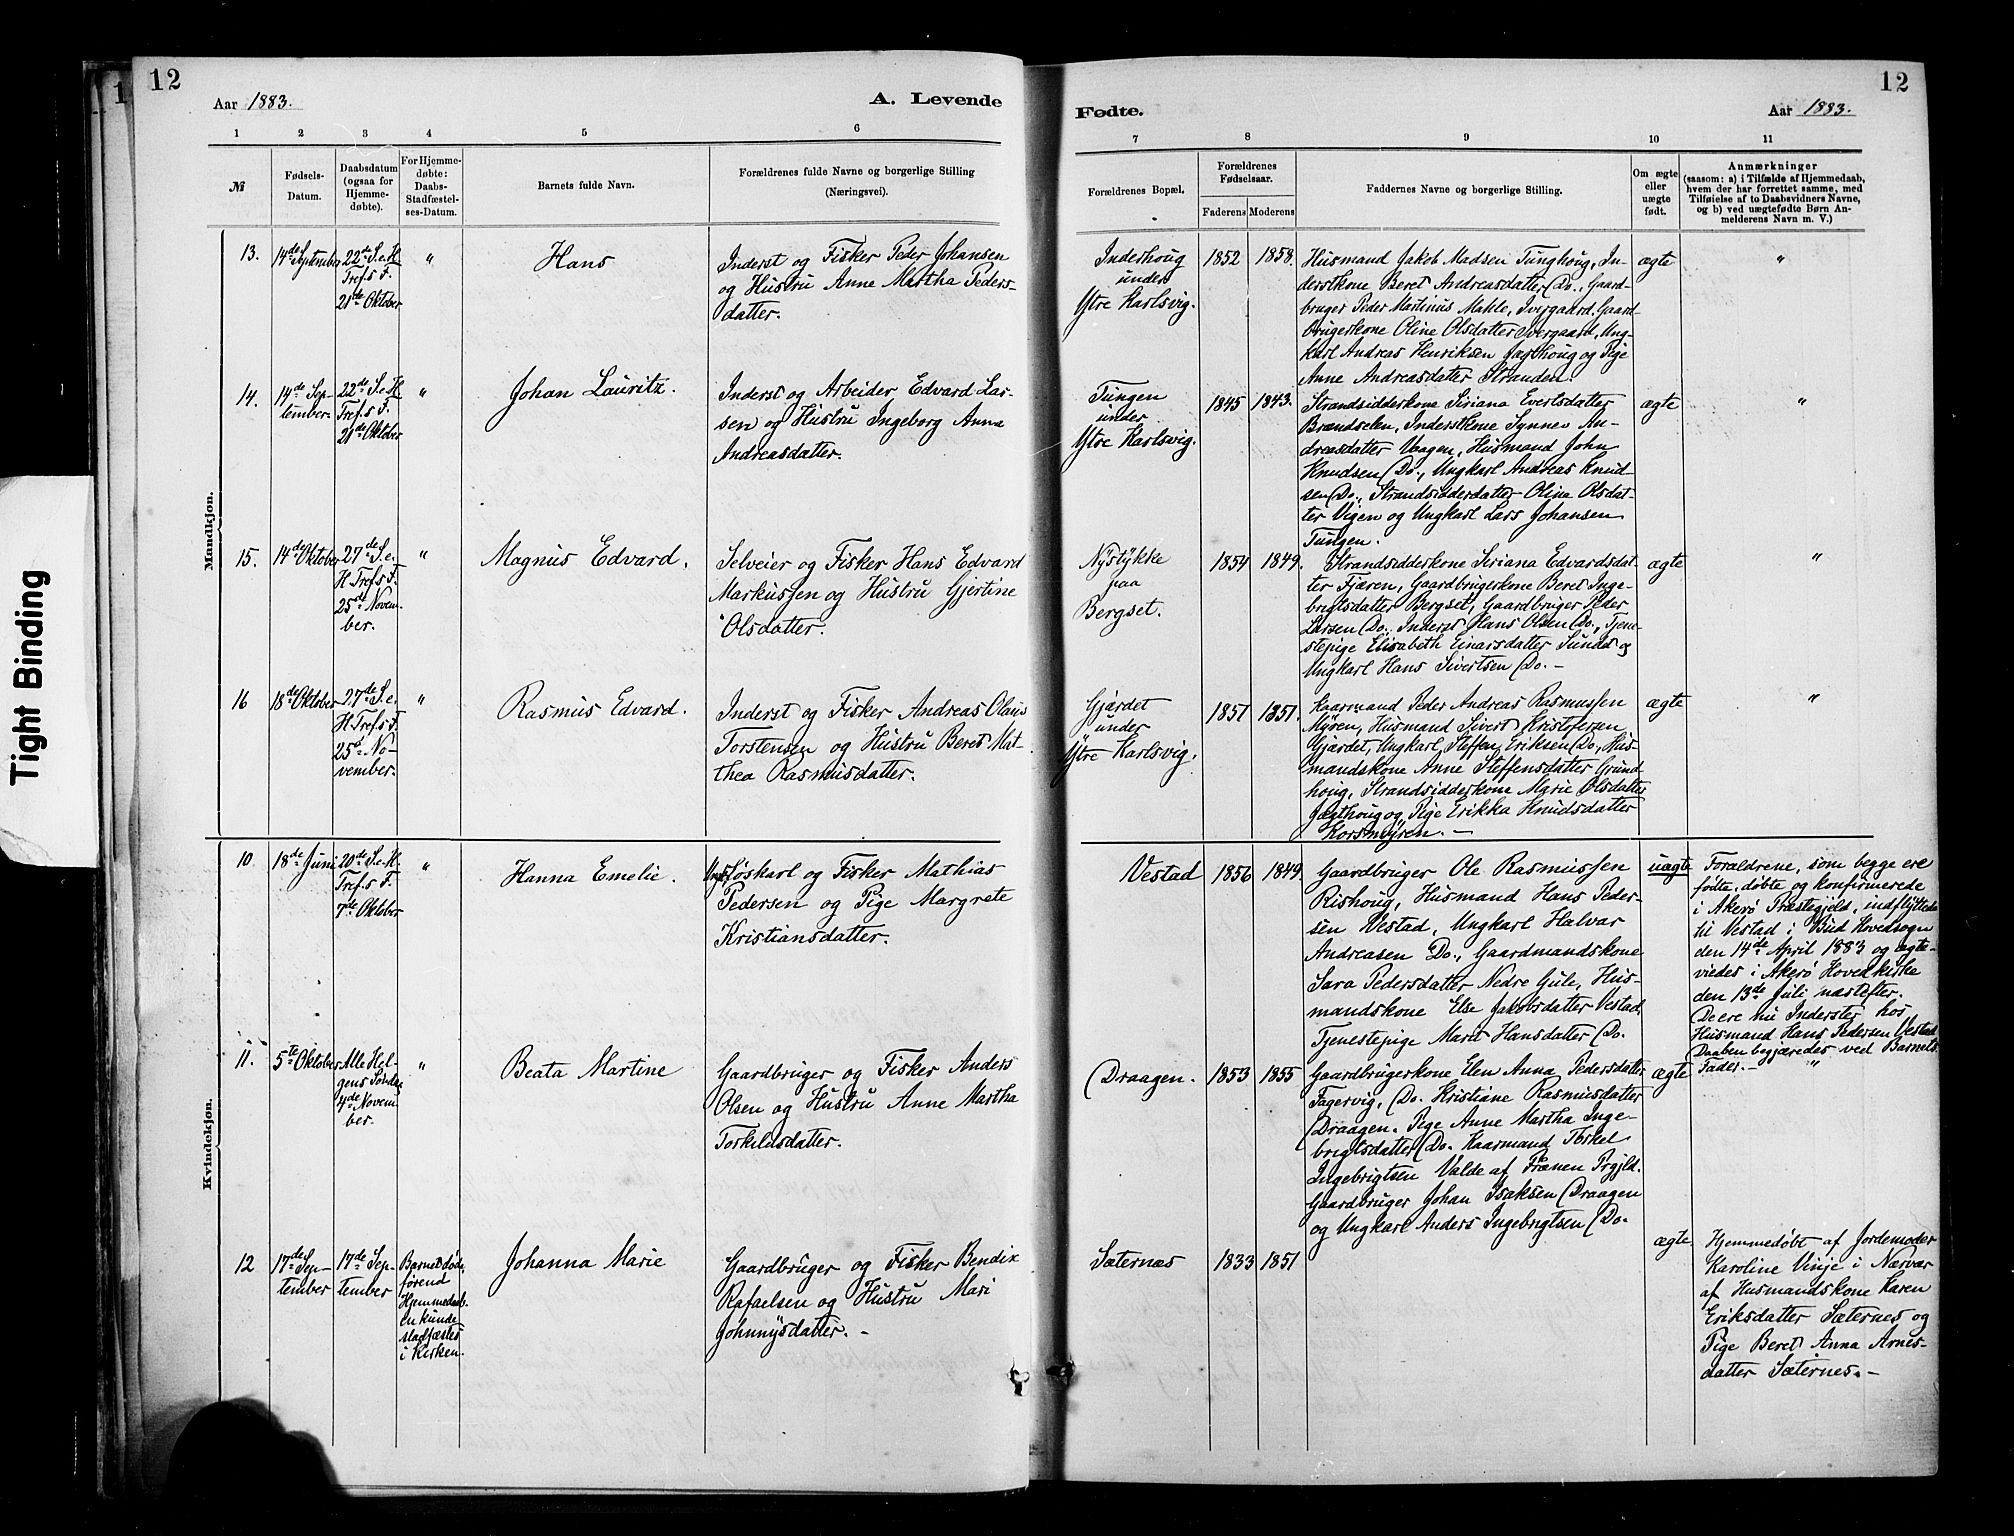 12
Aar 1883.
A. Levende
1 2 3 4 5 6
№
Fødsels-
Datum.
Daabsdatum
(ogsaa for
Hjemme-
døbte).
For Hjemme-
døbte:
Daabs-
Stadfæstel-
ses-Datum.
Barnets fulde Navn.
Forældrenes fulde Navne og borgerlige Stilling
(Næringsvei).
Mandkjøn.
13.
14de September
22de S. e. H.
Tref.s F.
21de Oktober
"
Hans
Inderst og Fisker Peder Johansen
og Hustru Anne Martha Peders-
datter.
14.
14de Sep-
tember.
22de S. e. H
Tref.s F.
21de Oktober
"
Johan Lauritz.
Inderst og Arbeider Edvard Lar-
sen og Hustru Ingeborg Anna
Andreasdatter.
15.
14de Oktober
27de S. e.
H. Tref.s F.
25de Novem-
ber.
"
Magnus Edvard.
Selveier og Fisker Hans Edvard
Markussen og Hustru Gjertine
Olsdatter.
16
18de Oktober
27de S. e.
H. Tref.s F.
25de No-
vember.
"
Rasmus Edvard.
Inderst og Fisker Andreas Olaus
Torstensen og Hustru Beret Mat-
thea Rasmusdatter.
Kvindekjøn.
10
18de Juni
20de S. e. H.
Tref.s F.
7de Oktober
"
Hanna Emelie.
Løskarl og Fisker Mathias
Pedersen og Pige Margrete
Kristiansdatter.
11.
5te Oktober
Alle Hel-
gens Søndag
4de Novem-
ber.
"
Beata Martine
Gaardbruger og Fisker Anders
Olsen og Hustru Anne Martha
Torkildsdatter.
12
17de Sep-
tember
17de Sep-
tember
Barnet døde
førend
Hjemmedaab-
en kunde
stadfæstes
i Kirken.
Johanna Marie
Gaardbruger og Fisker Bendix
Rafaelsen og Hustru Mari
Johnnysdatter. -
Fødte.
Aar 1883.
12
7 8 9 10 11
Forældrenes Bopæl.
Forældrenes
Fødselsaar.
Faderens Moderens
Faddernes Navne og borgerlige Stilling.
Om ægte
eller
uægte
født.
Anmærkninger
(saasom: a) i Tilfælde af Hjemmedaab,
hvem der har forrettet samme, med
Tilføielse af to Daabsvidners Navne,
og b) ved uægtefødte Børn An-
melderens Navn m. V.)
Inderhoug
under
Ytre Karlsvig.
1852 1858.
Husmand Jakob Madsen Tunghoug, In-
derstkone Beret Andreasdatter Do., Gaard-
bruger Peder Martinus Mahle, Ivergaard, Gaard-
brugerkone Oline Olsdatter Ivergaard, Ung-
karl Andreas Henriksen Jægthoug og Pige
Anne Andreasdatter Stranden.
ægte
"
Tungen
under
Ytre Karlsvig.
1845 1843.
Strandsidderkone Siriana Evertsdatter
Brændselen, Inderstkone Synnev An-
dreasdatter Vaagen, Husmand John
Knudsen Do., Ungkarl Andreas Knud-
sen Do., Strandsidderdatter Olina Olsdat-
ter Vigen og Ungkarl Lars Johansen
Tungen.
ægte
"
Nystykke
paa
Bergset.
1854 1849.
Strandsidderkone Siriana Edvardsdat-
ter Fjæren, Gaardbrugerkone Beret Inge-
brigtsdatter Bergset, Gaardbruger Peder
Larsen Do., Inderst Hans Olsen Do., Tjene-
stepige Elisabeth Einarsdatter Sunde og
Ungkarl Hans Sivertsen Do. -
ægte
"
Gjærdet
under
Ytre Karlsvig.
1851 1851.
Kaarmand Peder Andreas Rasmussen
Myren, Husmand Sivert Kristofersen
Gjærdet, Ungkarl Steffen Eriksen Do., Hus-
mandskone Anne Steffensdatter Grund-
houg, Strandsidderkone Marie Olsdatter
Jægthoug og Pige Erikka Knudsdatter
Korsmyren. -
ægte
"
Vestad
1856 1849.
Gaardbruger Ole Rasmussen
Rishoug, Husmand Hans Peder-
sen Vestad, Ungkarl Halvar
Andreasen Do., Gaardmandskone
Sara Pedersdatter Nedre Gule, Hus-
mandskone Else Jakobsdatter Vestad,
Tjenestepige Marit Hansdatter Do.
uægte
Forældrene, som begge ere
fødte, døbte og konfirmerede
i Akerø Præstegjeld, indflyttede
til Vestad i Bud Hovedsogn
den 14de April 1883 og ægte-
viedes i Akerø Hovedkirke
den 13de Juli næstefter.
De ere nu Inderster hos
Husmand Hans Pedersen Vestad
Daaben begjæredes ved Barnets
Fader. -
Draagen.
1853 1855
Gaardbrugerkone Elen Anna Pedersdatter
Fagervig, Do. Kristiane Rasmusdatter
Draagen. Pige Anne Martha Inge-
brigtsdatter Do. Kaarmand Torkel
Ingebrigtsen Valde af Frænen Prgjld.
Gaardbruger Johan Isaksen Draagen
og Ungkarl Anders Ingebrigtsen Do.
ægte
"
Sæternæs
1833 1851
ægte
Hjemmedøbt af Jordemoder
Karoline Vinje i Nærvær
af Husmandskone Karen
Eriksdatter Sæternes og
Pige Beret Anna Arnes-
datter Sæternes. -
Tight Binding